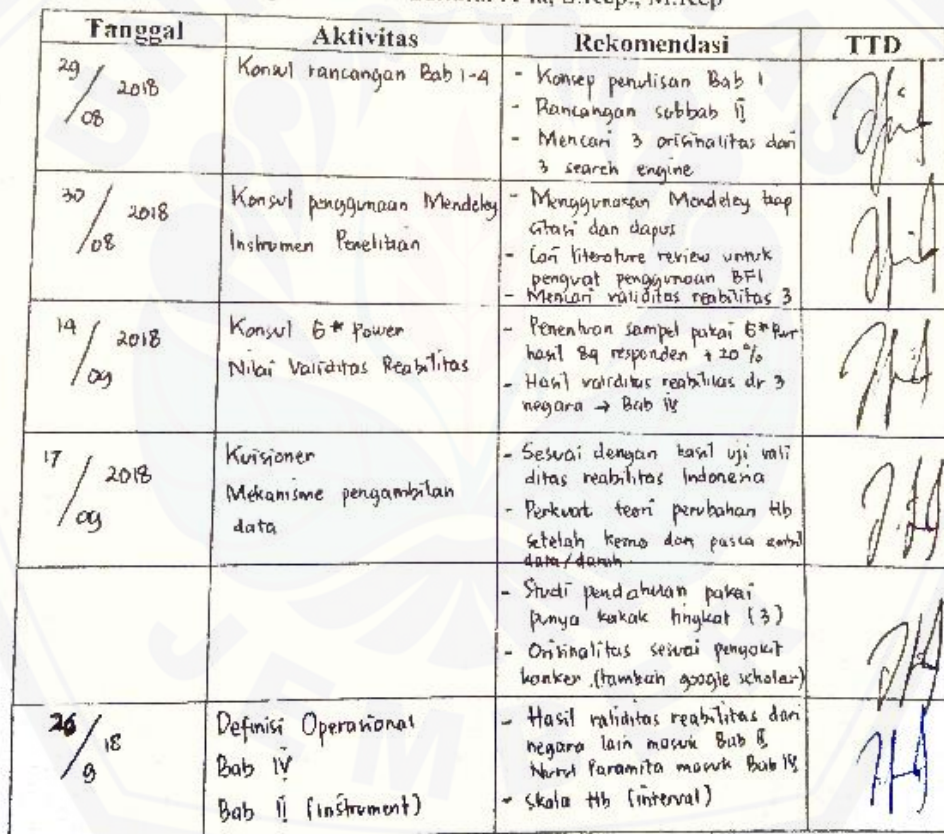 S.Kep., M.Kep
Tanggal Aktivitas Rekomendasi TTD
29/08 2018
Konsul rancangan Bab 1-4
- Konsep penulisan Bab 1
- Rancangan subbab II
- Mencari 3 orisinalitas dari
3 search engine
30/08 2018
Konsul penggunaan Mendeley
Instrumen Penelitian
- Menggunakan Mendeley tiap
citasi dan dapus
- Cari literature review untuk
penguat penggunaan BFI
- Mencari validitas reabilitas 3
14/09 2018
Konsul G* Power
Nilai Validitas Reabilitas
- Penentuan sampel pakai G* Pwr
hasil 89 responden + 10%
- Hasil validitas reabilitas dr 3
negara → Bab IV
17/09 2018
Kuisioner
Mekanisme pengambilan
data
- Sesuai dengan hasil uji vali
ditas reabilitas Indonesia
- Perkuat teori perubahan Hb
setelah kemo dan pasca ambil
data/darah
- Studi pendahuluan pakai
punya kakak tingkat (3)
- Orisinalitas sesuai penyakit
kanker (tambah google scholar)
26/9 18
Definisi Operasional
Bab IV
Bab II (instrument)
- Hasil validitas reabilitas dari
negara lain masuk Bab II,
Nurul Paramita masuk Bab IV
- Skala Hb (interval)
JEMBER